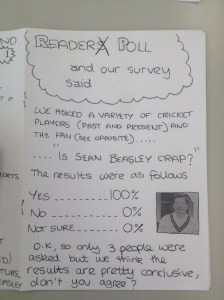 READER POLL
and our survey
said
WE ASKED A VARIETY OF CRICKET
PLAYERS (PAST AND PRESENT) AND
THE FAN (SEE OPPOSITE) .....
.... IS SEAN BEASLEY CRAP?"
The results were as follows
YES ---------- 100%
NO ---------- 0%
NOT SURE ------- 0%
O.K, so only 3 people were
asked but we think the
results are pretty conclusive,
don't you agree?
ND
13
EASLEY